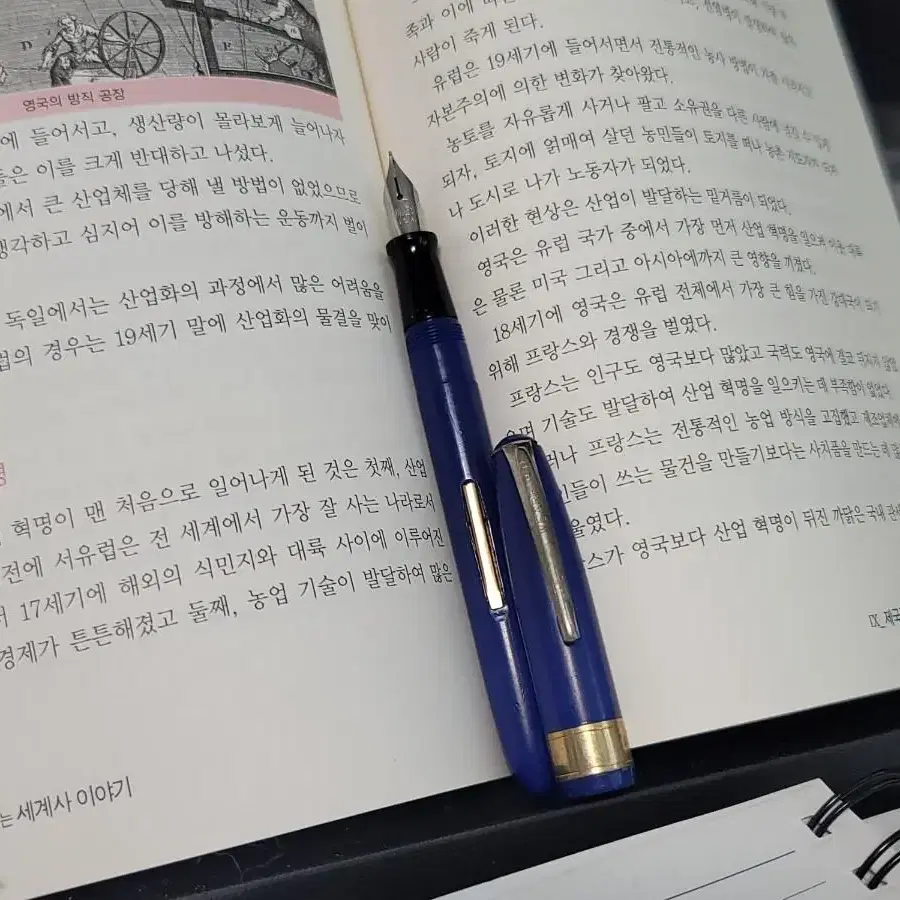 D
F
영국의 방직 공장
에 들어서고, 생산량이 몰라보게 늘어나자
들은 이를 크게 반대하고 나섰다.
에서 큰 산업체를 당해 낼 방법이 없었으므로
생각하고 심지어 이를 방해하는 운동까지 벌이
독일에서는 산업화의 과정에서 많은 어려움을
럽의 경우는 19세기 말에 산업화의 물결을 맞이
명
혁명이 맨 처음으로 일어나게 된 것은 첫째, 산업
전에 서유럽은 전 세계에서 가장 잘 사는 나라로서
17세기에 해외의 식민지와 대륙 사이에 이루어진
경제가 튼튼해졌고 둘째, 농업 기술이 발달하여 많은
는 세계사 이야기
족과 이에
사람이 죽게 된다.
유럽은 19세기에 들어서면서 전통적인 농사 방법이
자본주의에 의한 변화가 찾아왔다.
농토를 자유롭게 사거나 팔고 소유권을 다른 사람에게
되자, 토지에 얽매여 살던 농민들이 토지를 떠나
나 도시로 나가 노동자가 되었다.
이러한 현상은 산업이 발달하는 밑거름이 되었다.
영국은 유럽 국가 중에서 가장 먼저 산업 혁명을 일으켜
은 물론 미국 그리고 아시아에까지 큰 영향을 끼쳤다.
18세기에 영국은 유럽 전체에서 가장 큰 힘을 가진
위해 프랑스와 경쟁을 벌였다.
프랑스는 인구도 영국보다 많았고 국력도 영국에 결코 뒤지지 않았
으며 기술도 발달하여 산업 혁명을 일으키는 데 부족함이 없었다.
러나 프랑스는 전통적인 농업 방식을 고집했고
인들이 쓰는 물건을 만들기보다는 사치품을 만드는 데
울였다.
스가 영국보다 산업 혁명이 뒤진 까닭은 국내
IX_제국